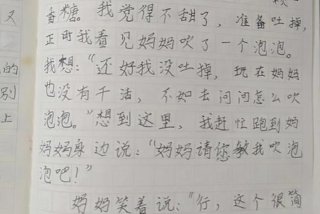 又
的
别
上
香糖。我觉得不甜了，准备吐掉，
正可我看见妈妈吹了一个泡泡。
我想："还好我没吐掉，现在妈妈
也没有干活，不如去问问怎么吹
泡泡。"想到这里，我赶忙跑到妈
妈妈身边说："妈妈请您教我吹泡
泡吧！"
妈妈笑着说："行，这个很简